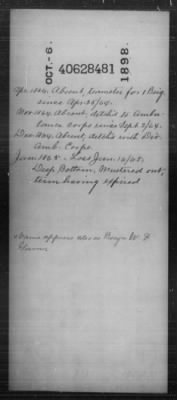 OCT.-6.
40628481
1898.
Apr. 1864. Absent, teamster for 1 Brig.
since Apr 25/64.
Nov 1864. Absent, detch'd in Ambu-
lance corps since Sept 2/64.
Dec. 1864. Absent, detch'd with Div.
Amb. Corps.
Jan. 1865 - Loss Jan. 12/65.
Deep Bottom, Mustered out,
term having expired
Name appears also as Benj W. F